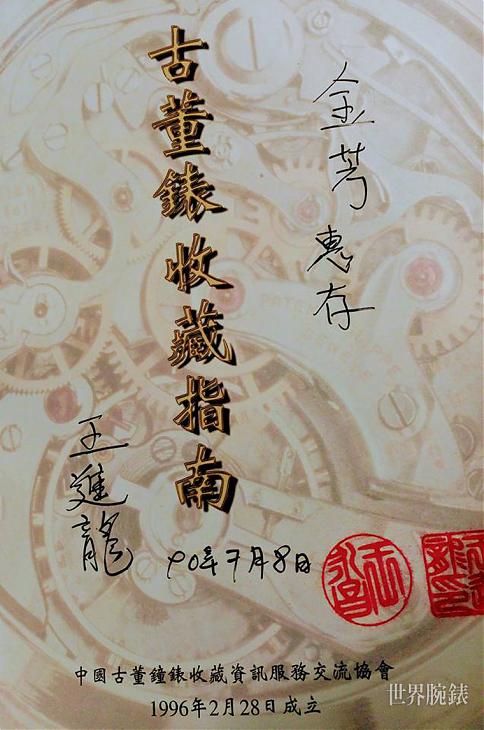 金芳惠存
古董錶收藏指南
王進龍
90年7月8日
中國古董鐘錶收藏資訊服務交流協會
1996年2月28日成立
世界腕錶